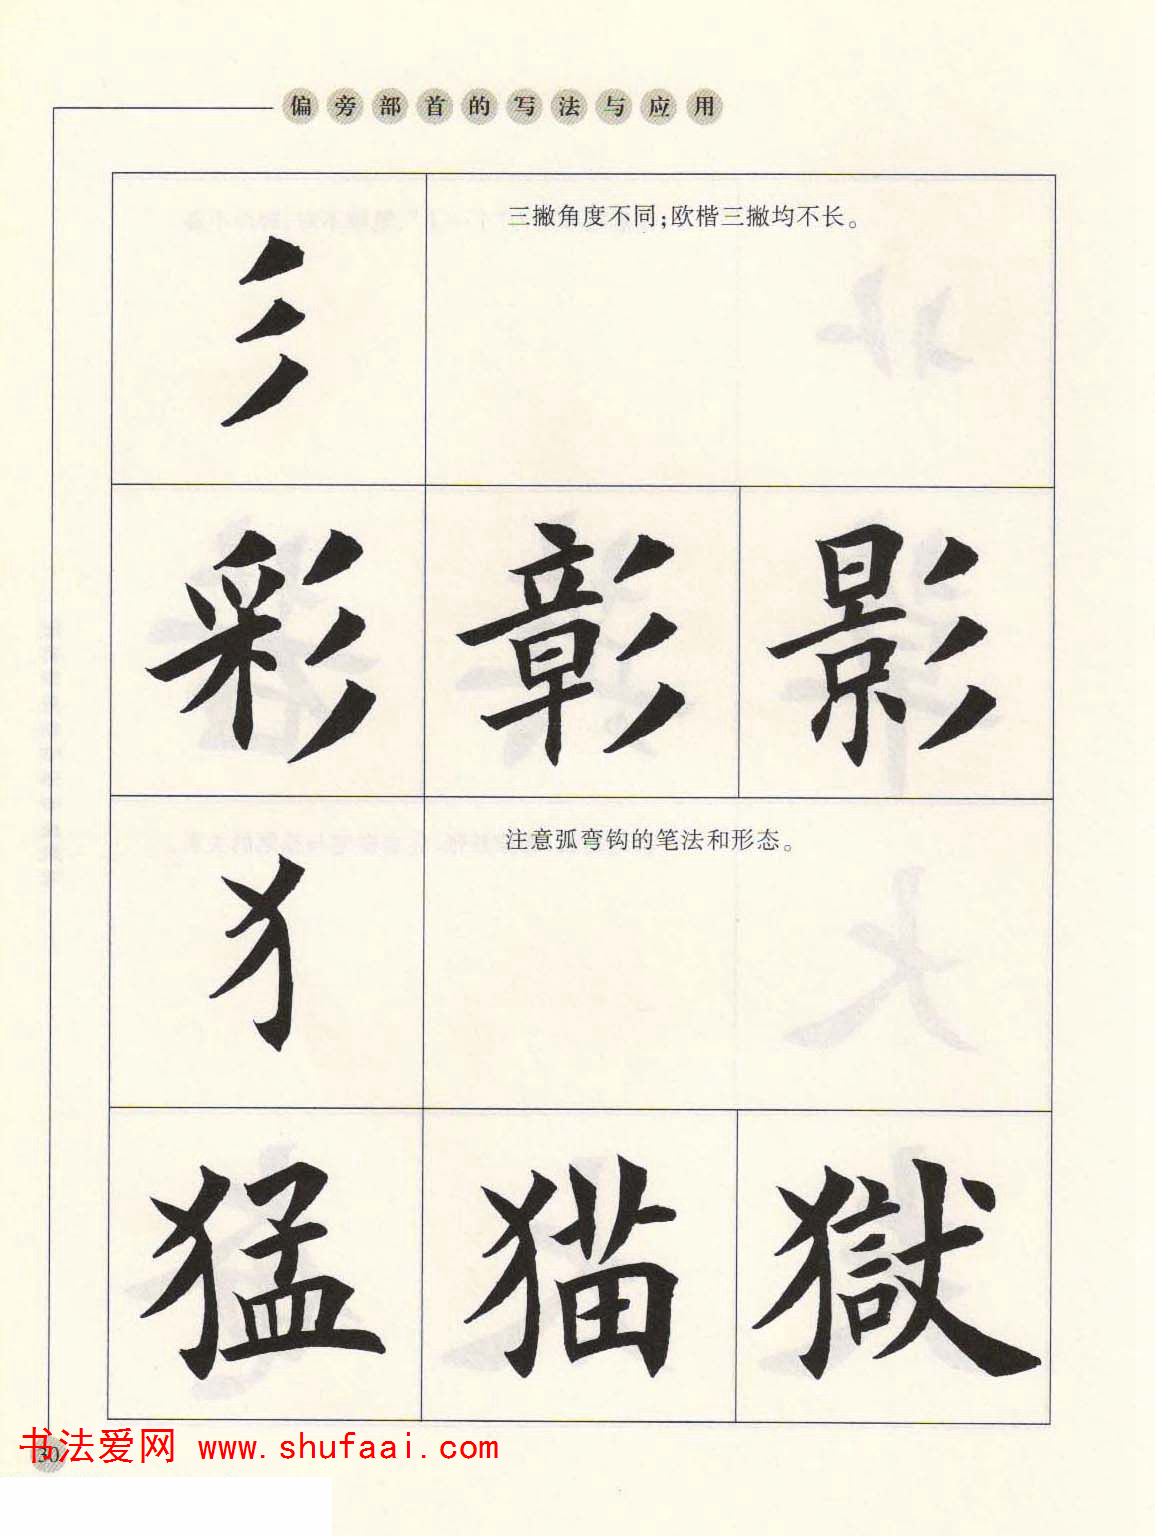 偏旁部首的写法与应用
彡
三撇角度不同；欧楷三撇均不长。
彩 彰 影
犭
注意弧弯钩的笔法和形态。
猛 猫 獄
书法爱网 www.shufaai.com
30